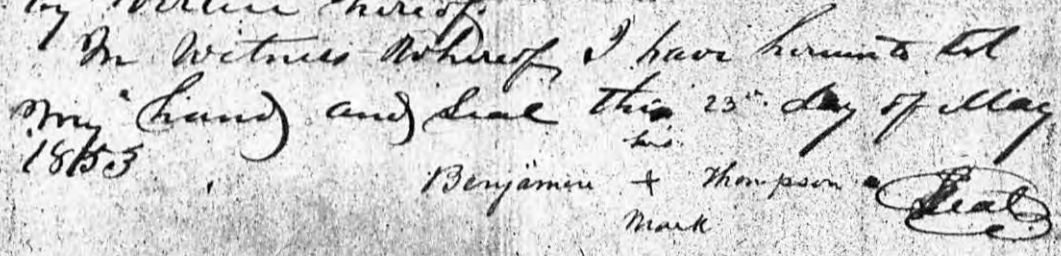 by virtue thereof.
In Witness Whereof, I have hereunto set
my hand and Seal this 23rd day of May
1853
his
Benjamin + Thompson Seal
mark